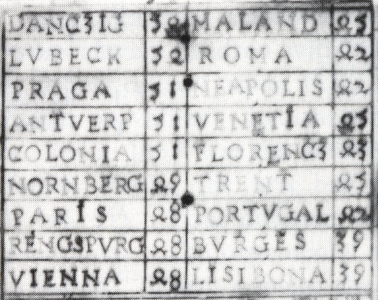 DANCZIG MALAND 23
LVBECK 32 ROMA 22
PRAGA 31 NEAPOLIS 22
ANTVERP 31 VENETIA 23
COLONIA 31 FLORENCZ 23
NORNBERG 29 TRENT 23
PARIS 28 PORTVGAL 22
RENGSPVRG 28 BVRGES 39
VIENNA 28 LISIBONA 39